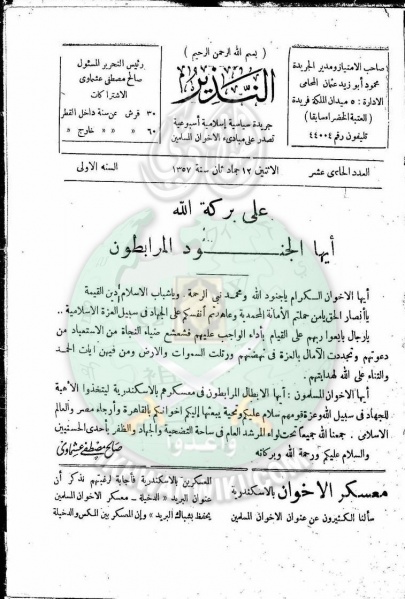 ( بسم الله الرحمن الرحيم )
صاحب الامتياز ومدير الجريدة
محمود أبو زيد عثمان المحامى
الادارة : ٥ ميدان الملكة فريدة
( العتبة الخضراء سابقا )
تليفون رقم ٤٤٠٠٤
النذير
جريدة سياسية إسلامية أسبوعية
تصدر على مبادىء الاخوان المسلمين
رئيس التحرير المسئول
صالح مصطفى عشماوى
الاشتراكات
٣٠ قرش عن سنة داخل القطر
٦٠ » » » خارج »
العدد الحادى عشر
الاثنين ١٢ جماد ثان سنة ١٣٥٧
السنه الاولى
على بركة الله
أيها الجنود المرابطون
أيها الاخوان الكرام ياجنود الله ومحمد نبي الرحمة . وياشباب الاسلام دين القيمة
ياأنصار الحق يامن حملتم الأمانة المحمدية وعاهدتم أنفسكم على الجهاد فى سبيل العزة الاسلامية ..
يارجال بايعوا ربهم على القيام بأداء الواجب عليهم فشعشع ضياء النجاة من الاستعباد من
دعوتهم وتجددت الآمال بالعزة فى نهضتهم ورتلت السموات والارض ومن فيهن آيات الحمد
والثناء على الله لهدايتهم .
أيها الاخوان المسلمون : أيها الابطال المرابطون فى معسكرهم بالاسكندرية ليتخذوا الأهبة
للجهاد فى سبيل الله وعزة قومهم سلام عليكم وتحية يبعثها إليكم اخوانكم بالقاهرة وأرجاء مصر والعالم
الاسلامى . جمعنا الله جميعا تحت لواء المرشد العام فى ساحة التضحية والجهاد والظفر بأحدى الحسنيين
والسلام عليكم ورحمة الله وبركاته
صالح مصطفى عشماوى
معسكر الاخوان بالاسكندرية
سألنا الكثيرون عن عنوان الاخوان المسلمين
المعسكرين بالاسكندرية فأجابة لرغبتهم نذكر أن
عنوان البريد « الدخيلة ـ معسكر الاخوان المسلمين
يحفظ بشباك البريد » وإن المعسكر بين المكس والدخيلة
وأعدوا